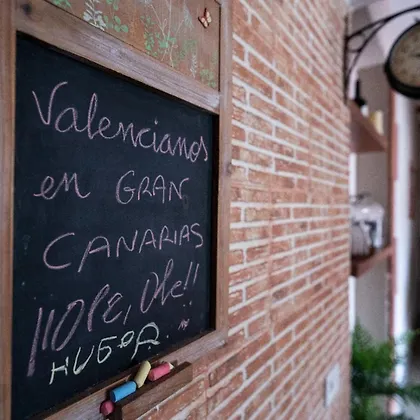 Valencianos
en GRAN
CANARIAS
¡¡¡Olé, Olé!!
HUGO R.